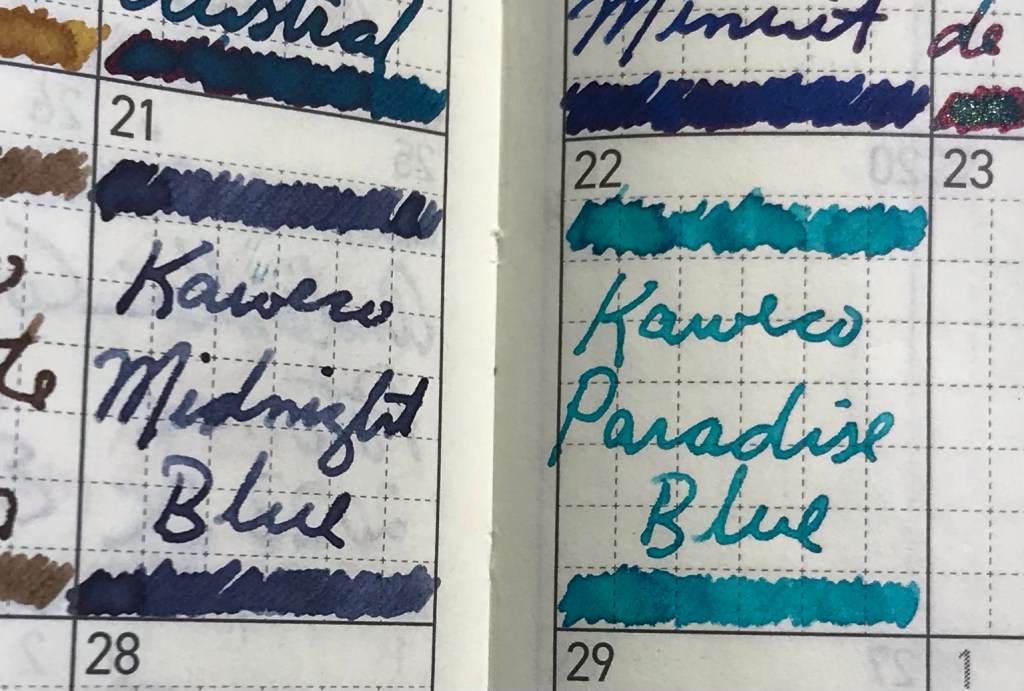 Minuit
de
21
Kaweco
Midnight
Blue
22
Kaweco
Paradise
Blue
23
28
29
1